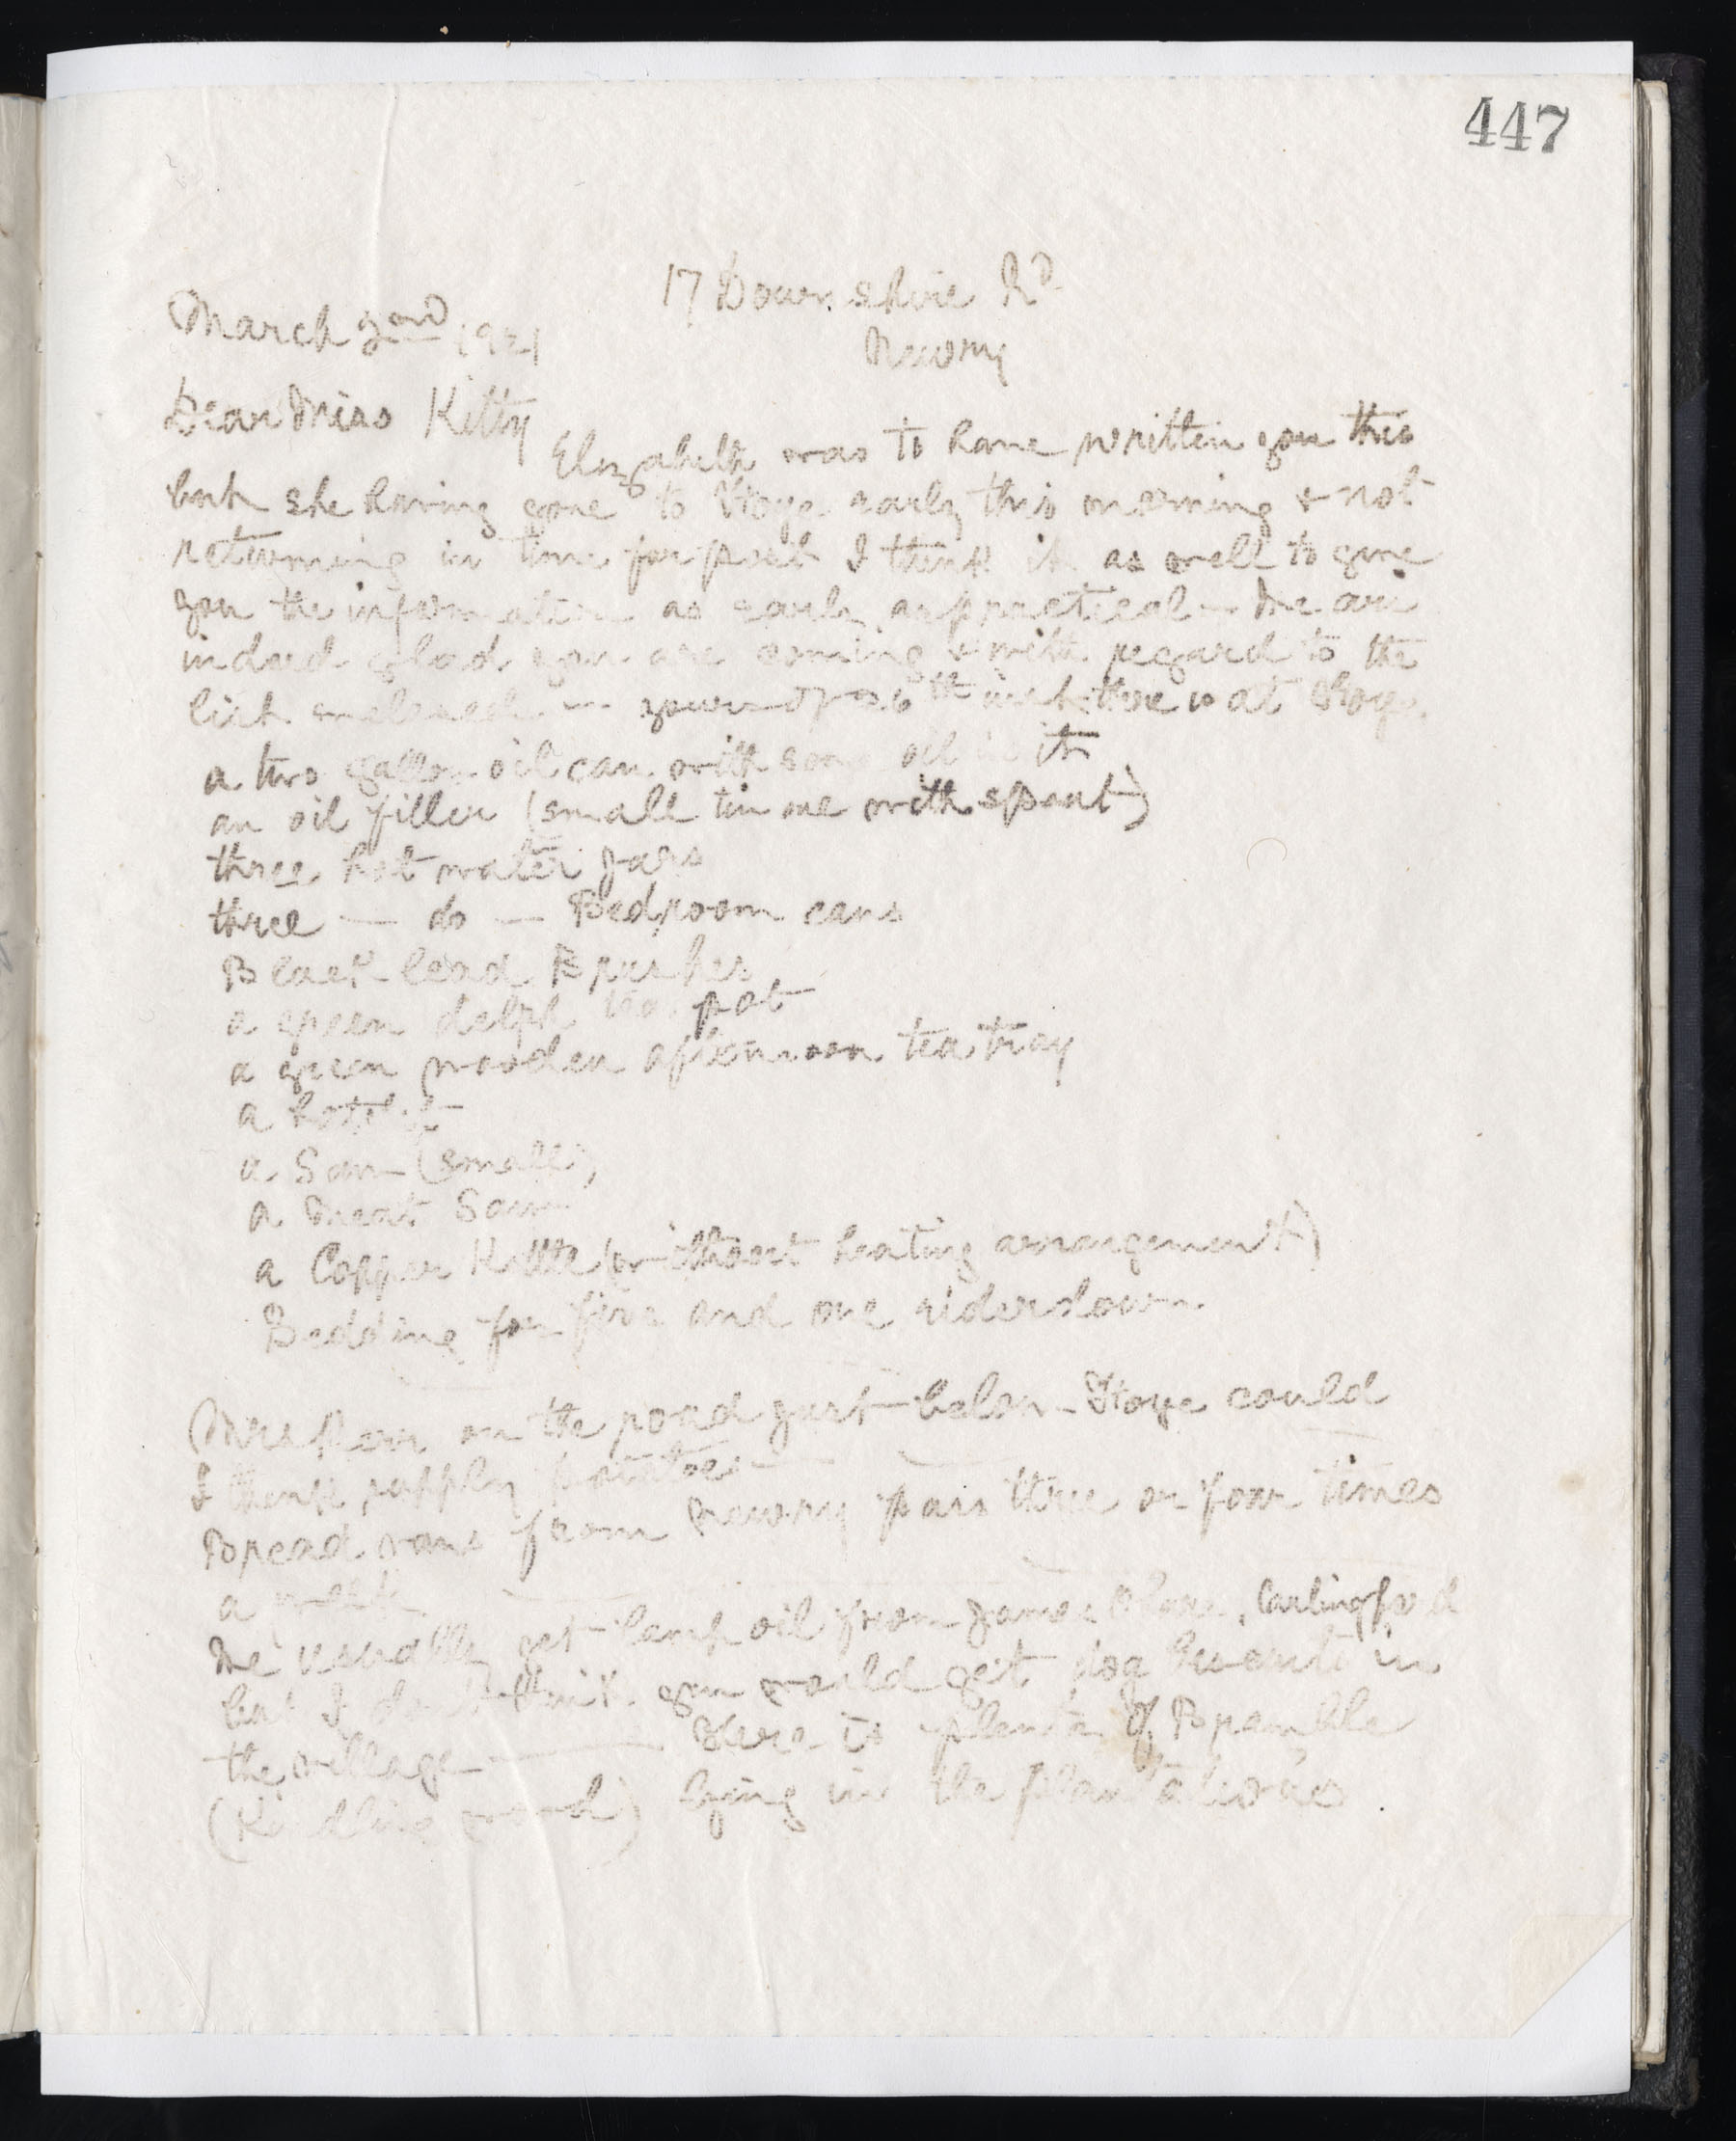 447
17 Downshire Rd
March 2nd 1921
Newry
Dear Miss Kitty
Elizabeth was to have written you this
but she having gone to early this morning & not
returning in time for post I think it as well to give
you the information as early as practical — We are
indeed glad you are coming & with regard to the
list enclosed — yours of 26th there is at
a two gallon oil can with some oil in it
an oil filler (small tin one with spout)
three hot water jars
three — do — Bedroom cans
Black-lead Brushes
a green delph tea pot
a green wooden afternoon tea tray
a hatchet
a Saw (small)
a Meat Saw
a Copper Kettle (without heating arrangement)
Bedding for five and one eiderdown.
Mrs on the road just below could
I think supply potatoes
Bread vans from Newry pass three or four times
a week
We usually get lamp oil from James , Carlingford
but I don't think you would get in
the village — There is plenty of Bramble
(Kindling wood) lying in the plantations.